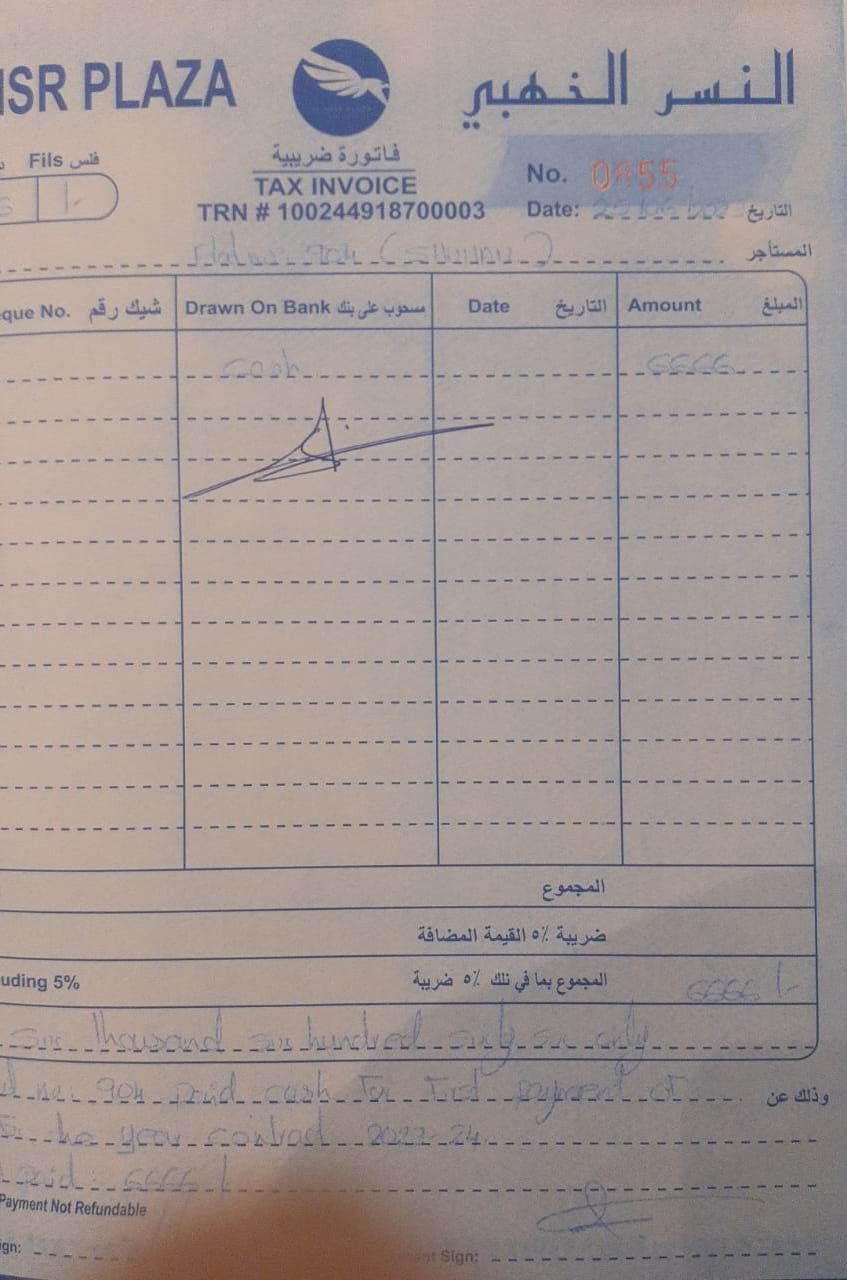 NSR PLAZA
النسر الذهبي
Fils فلس
/-
فاتورة ضريبية
TAX INVOICE
TRN # 100244918700003
No. 0855
Date: التاريخ
المستأجر
que No. شيك رقم Drawn On Bank مسحوب على بنك Date التاريخ Amount المبلغ
cash 6666
المجموع
ضريبة ٥٪ القيمة المضافة
uding 5% المجموع بما في ذلك ٥٪ ضريبة 6666 /-
six thousand six hundred sixty six only
904 paid cash for First payment of وذلك عن
the year contract
paid : 6666 /
Payment Not Refundable
ign: Sign: